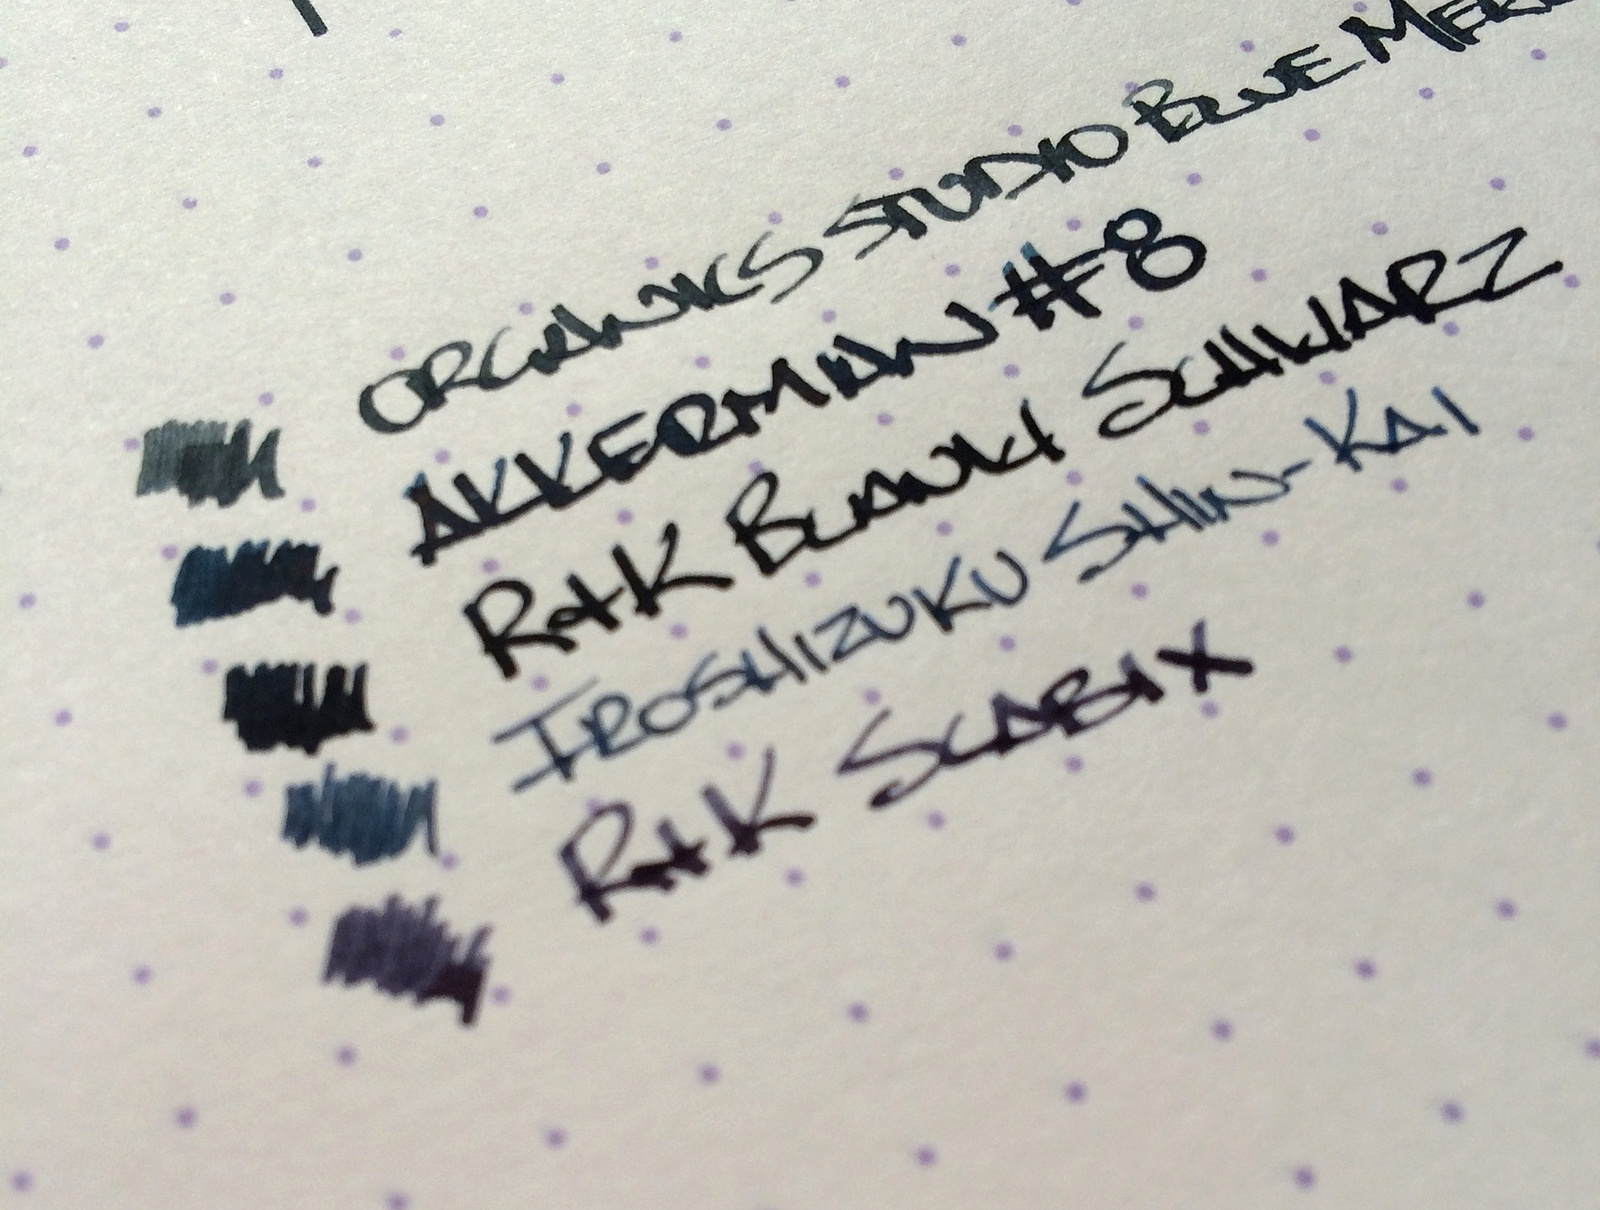 ORGANICS STUDIO BLUE MER
AKKERMAN #8
R+K BLAUH SCHWARZ
IROSHIZUKU SHIN-KAI
R+K SCABIX